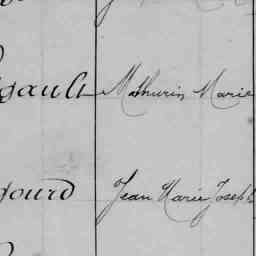 gault Mathurin Marie
gourd Jean Marie Joseph